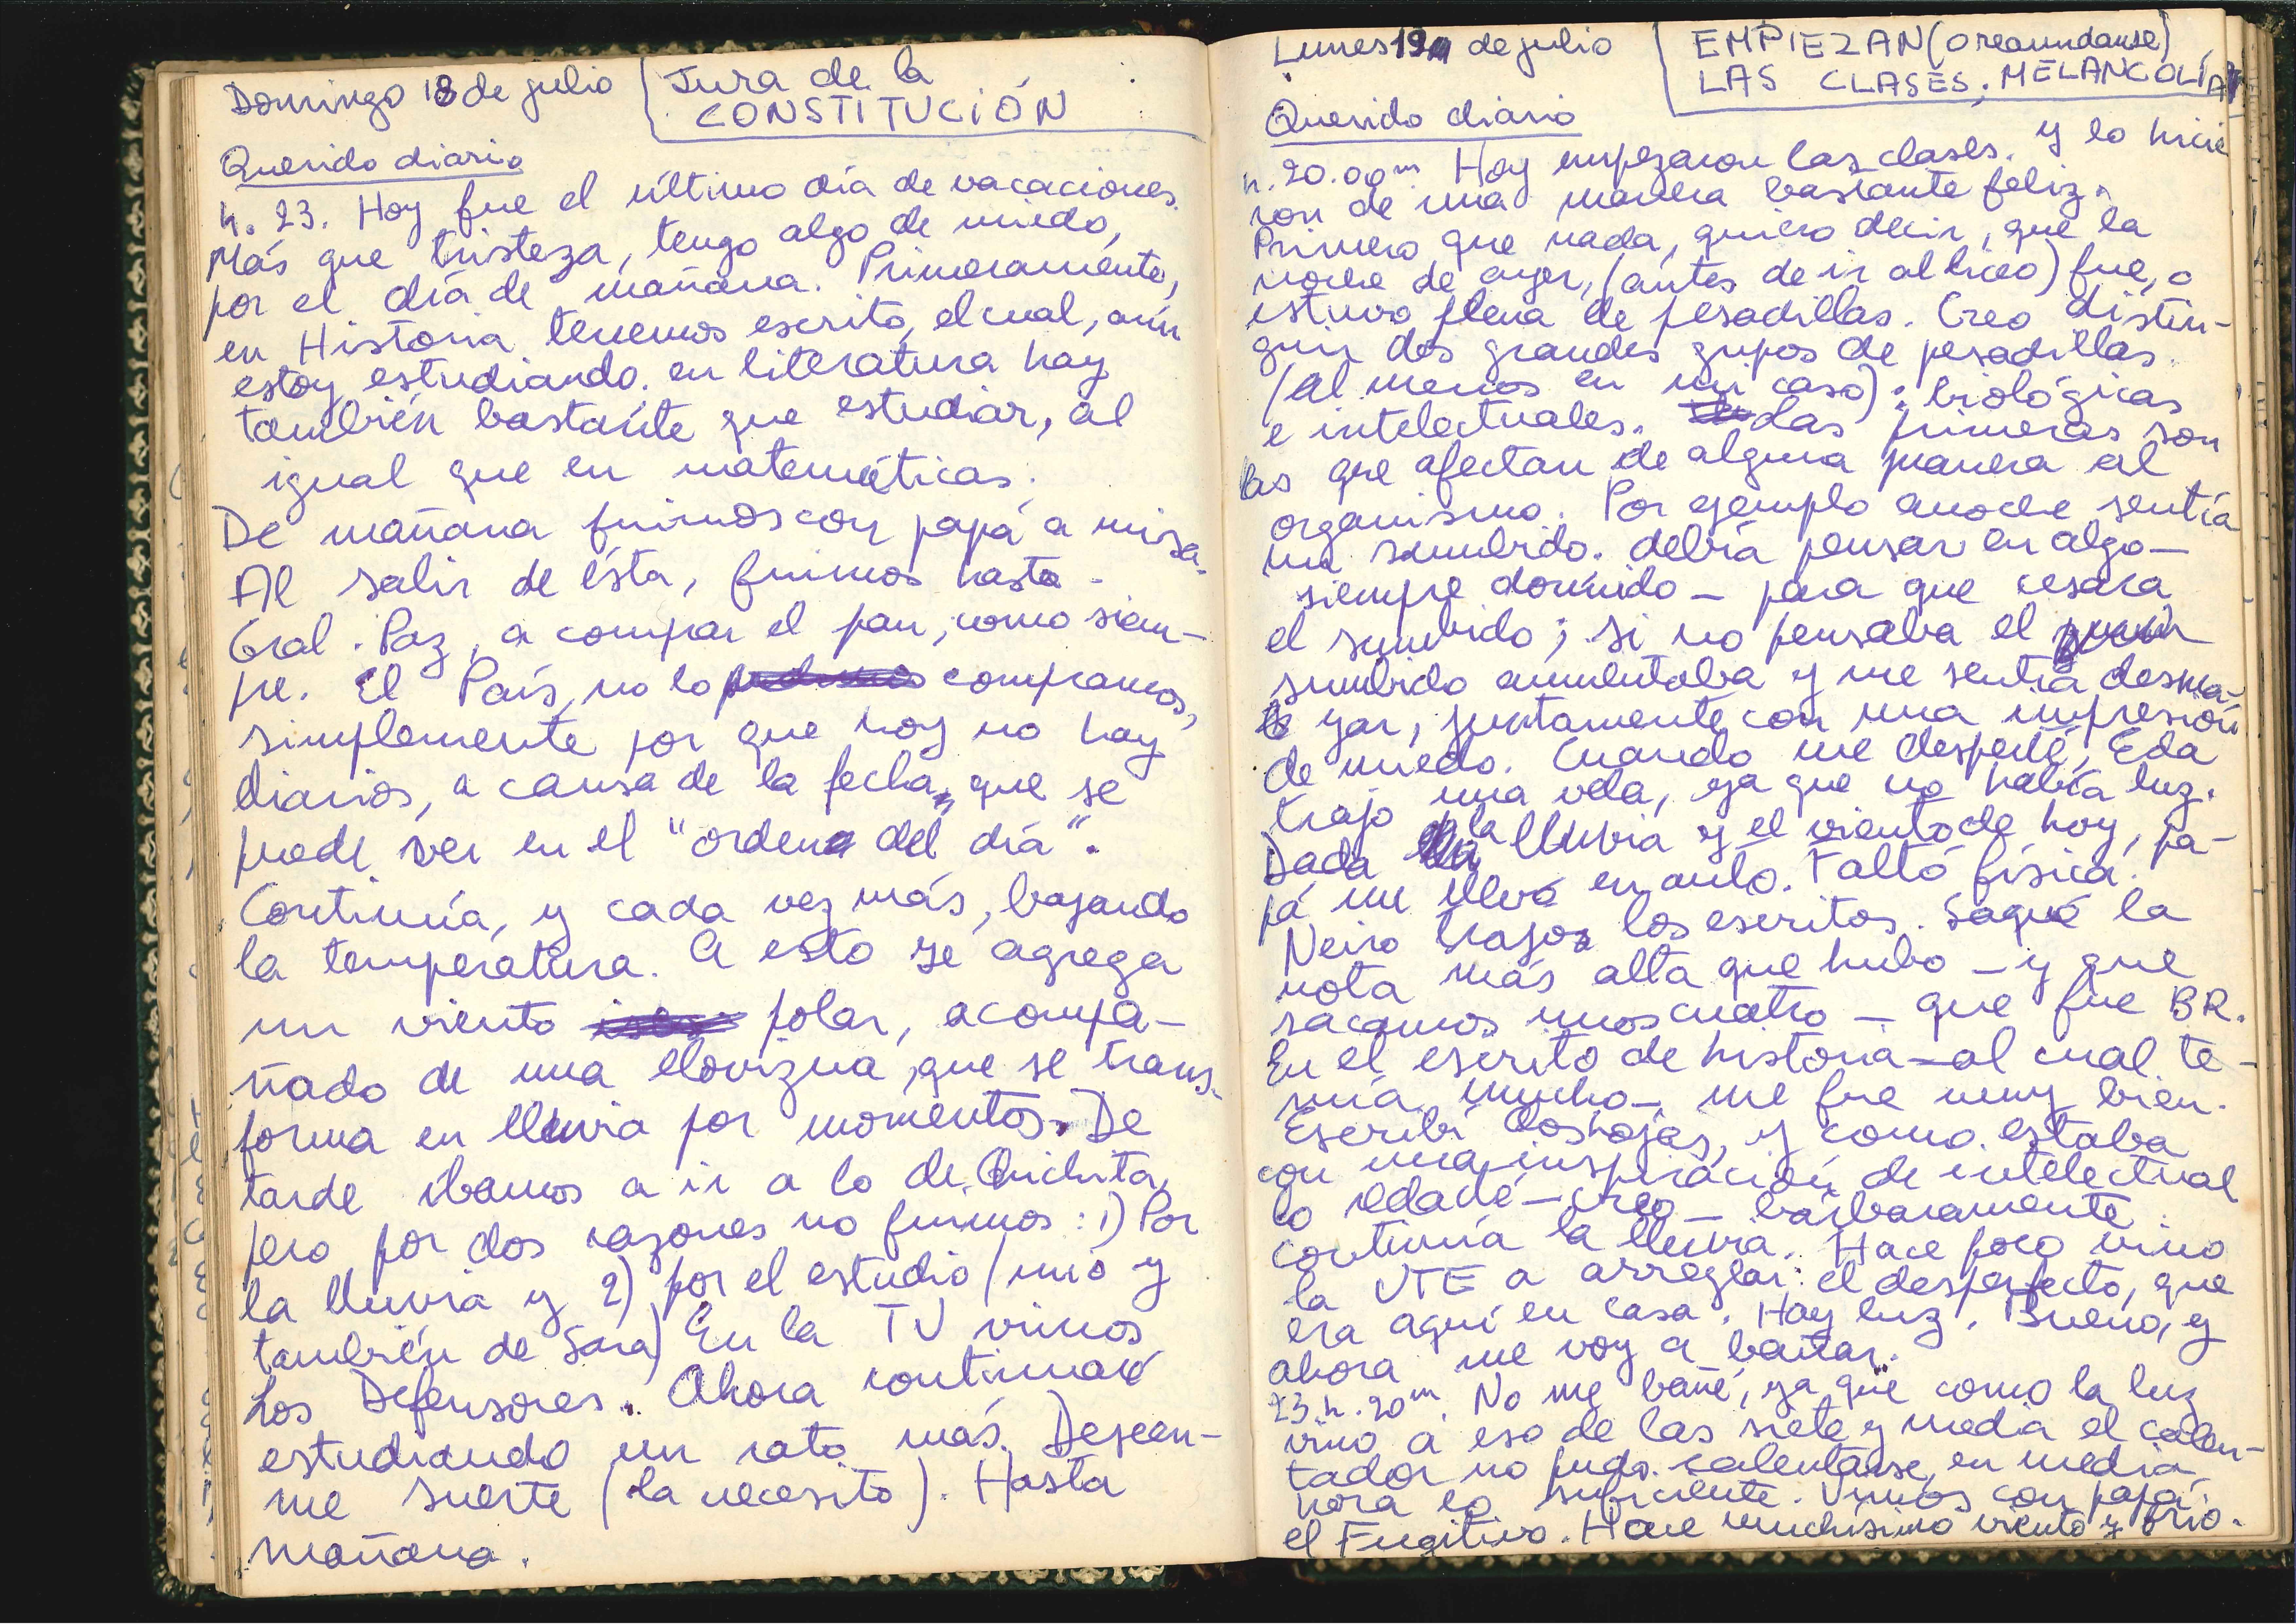 Domingo 18 de julio
Jura de la
CONSTITUCIÓN
Querido diario
h. 23. Hoy fue el último día de vacaciones.
Más que tristeza, tengo algo de miedo,
por el día de mañana. Primeramente,
en Historia tenemos escrito, el cual, aún
estoy estudiando. en literatura hay
también bastante que estudiar, al
igual que en matemáticas.
De mañana fuimos con papá a misa.
Al salir de ésta, fuimos hasta
Gral. Paz, a comprar el pan, como siem-
pre. El País, no lo compramos,
simplemente por que hoy no hay
diarios, a causa de la fecha, que se
puede ver en el "orden del día".
Continúa, y cada vez más, bajando
la temperatura. A esto se agrega
un viento polar, acompa-
ñado de una llovizna, que se trans-
forma en lluvia por momentos. De
tarde íbamos a ir a lo de Chichita,
pero por dos razones no fuimos: 1) Por
la lluvia y 2) por el estudio (mío y
también de Sara) En la TV vimos
Los Defensores. Ahora continuaré
estudiando un rato más. Desean-
me suerte (la necesito). Hasta
mañana.
Lunes 19 de julio
EMPIEZAN (o reanundanse)
LAS CLASES; MELANCOLÍA
Querido diario
h. 20.00m Hoy empezaron las clases. y lo hicie
ron de una manera bastante feliz.
Primero que nada, quiero decir, que la
noche de ayer, (antes de ir al liceo) fue, o
estuvo plena de pesadillas. Creo distin-
guir dos grandes grupos de pesadillas
(al menos en mi caso): biológicas
e intelectuales. Las primeras son
las que afectan de alguna manera al
organismo. Por ejemplo anoche sentía
un sumbido. debía pensar en algo—
siempre dormido — para que cesara
el sumbido; si no pensaba el
sumbido aumentaba y me sentía desma-
yar, juntamente con una impresión
de miedo. Cuando me desperté, Eda
trajo una vela, ya que no había luz.
Dada la lluvia y el viento de hoy, pa-
pá me llevó en auto. Faltó física.
Neiro trajo los escritos. Saqué la
nota más alta que hubo — y que
sacamos unos cuatro — que fue BR.
En el escrito de historia — al cual te-
mía mucho — me fue muy bien.
Escribí dos hojas, y como estaba
con una inspiración de intelectual
lo redacté — creo — bárbaramente.
Continúa la lluvia. Hace poco vino
la UTE a arreglar el desperfecto, que
era aquí en casa. Hay luz. Bueno, y
ahora me voy a bañar.
23.h.20m. No me bañé, ya que como la luz
vino a eso de las siete y media el calen-
tador no pudo calentarse, en media
hora lo suficiente. Vimos con papá:
el Fugitivo. Hace muchísimo viento y frío.